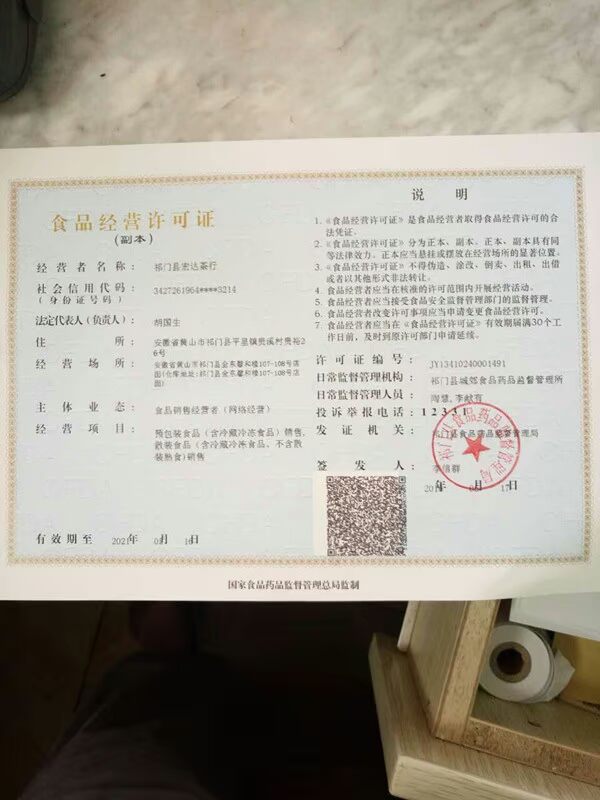 食品经营许可证
(副本)
经营者名称： 祁门县宏达茶行
社会信用代码： 3427261964****3214
(身份证号码)
法定代表人(负责人)： 胡国生
住所： 安徽省黄山市祁门县平里镇贵溪村贵裕2
6号
经营场所： 安徽省黄山市祁门县金东馨和楼107-108号店
面(仓库地址:祁门县金东馨和楼107-108号店
面)
主体业态： 食品销售经营者（网络经营）
经营项目： 预包装食品（含冷藏冷冻食品）销售,
散装食品（含冷藏冷冻食品、不含散
装熟食)销售
有效期至 2021年 月 16日
说明
1.《食品经营许可证》是食品经营者取得食品经营许可的合
法凭证。
2.《食品经营许可证》分为正本、副本。正本、副本具有同
等法律效力。正本应当悬挂或摆放在经营场所的显著位置。
3.《食品经营许可证》不得伪造、涂改、倒卖、出租、出借
或者以其他形式非法转让。
4.食品经营者应当在核准的许可范围内开展经营活动。
5.食品经营者应当接受食品安全监督管理部门的监督管理。
6.食品经营者改变许可事项应当申请变更食品经营许可。
7.食品经营者应当在《食品经营许可证》有效期届满30个工
作日前,及时到原许可部门申请延续。
许可证编号： JY13410240001491
日常监督管理机构： 祁门县城郊食品药品监督管理所
日常监督管理人员： 陶慧,李献育
投诉举报电话：12331
发证机关： 祁门县食品药品监督管理局
签发人： 李信群
年 月 17日
祁门县食品药品监督管理局
国家食品药品监督管理总局监制